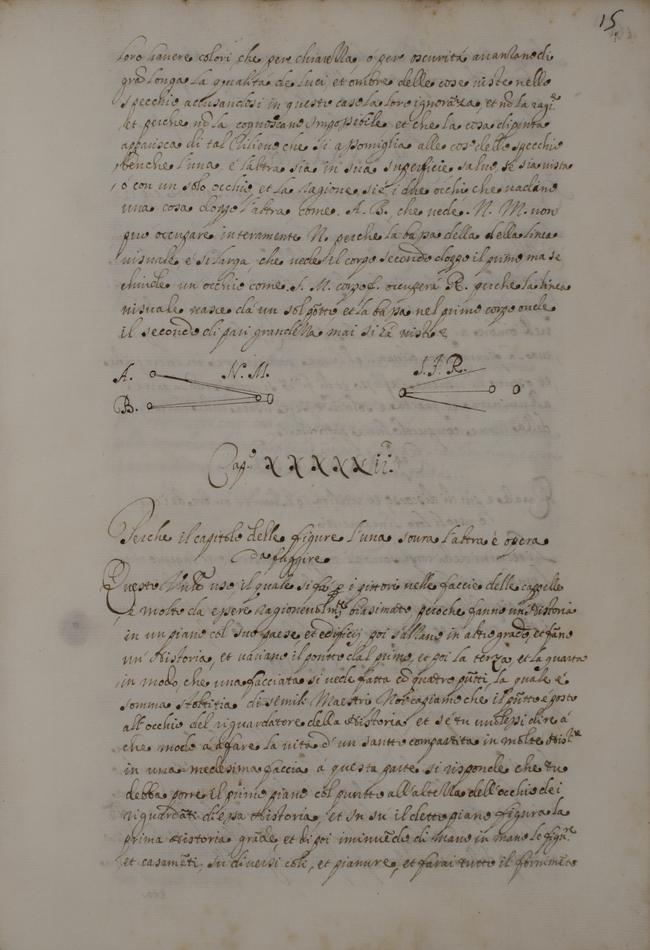 15
loro havere colori che per chiarezza, ó per oscuritá avanzano di
gra longa la qualita de luci et ombre delle cose viste nello
specchio accusandosi in questo caso la loro ignoranza et nõ la ragi.e
et perche nõ la cognoscano Impossibile et che la cosa dipinta
apparisca di tal che si assomiglia alle cose dello specchio
benche l'una, e l'altra sia in sua superficie, salvo, se sia vista
o con un solo occhio, et la Ragione si è i due occhi che vedano
una cosa doppo l'altra come. A. B. che vede. N. M. non
puo occupare interamente N. perche la bassa della della linea
visuale è si larga, che vede il corpo secondo doppo il primo ma se
chiude un occhio come. S. M. corpo f. occuperá R. perche la linea
visuale nasce da un sol põtto et la bassa nel primo corpo onde
il secondo di pari grandezza mai si rá visto
A. N. M. S. f. R.
B.
Cap.o XXXXXII.
Perche il capitolo delle figure l'una soura l'altra é opera
da fuggire
Questo use, il quale si fá p i pittori nelle faccie delle cappelle
è molto da essere Ragionevolm.te biasimatto peroche fanno un'Historia
in un piano col suo paese et edificij poi s'alzano in altro grado, et fãno
un'Historia, et variano il pontto dal primo, et poi la terza, et la quarta
in modo, che una facciata si vede fatta cõ quatro põtti, la quale è
somma stoltitia di simili Maestri Noi sapiamo che il põtto é posto
all'occhio del riguardatore della Historia et se tu volessi dire á
che modo á á fare la vita d'un santto compartita in molte Hist.e
in una medesima faccia á questa parte si risponde che tu
debba porre il primo piano col puntto all'altezza dell'occhio dei
riguardãti di essa Historia, et In su il detto piano figura la
prima Historia grãde, et di poi diminuẽdo di mano in mano le figur.e
et casamẽti, su diversi coli, et pianure, et farai tutto il fornimẽto